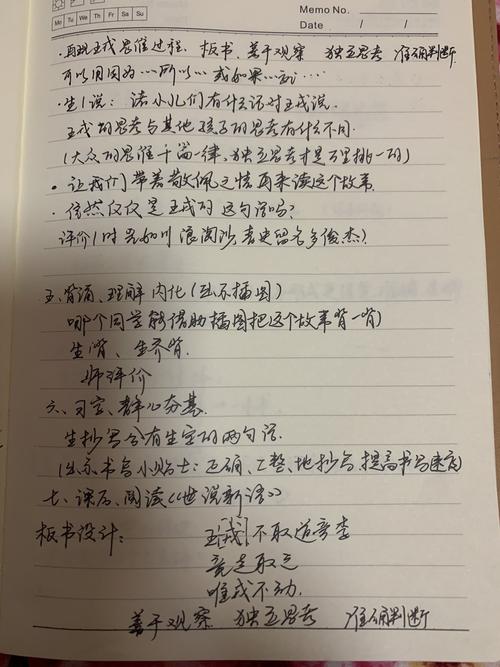 Mo Tu We Th Fr Sa Su
Memo No.
Date / /
·再现王戎思维过程. 板书. 善于观察 独立思考 准确判断
可以用因为……所以…… 或如果…就……
·生1说: 诸小儿们有什么话对王戎说.
王戎的思考与其他孩子的思考有什么不同.
(大众的思维千篇一律. 独立思考才是万里挑一的)
·让我们带着敬佩之情再来读这个故事.
·信然仅仅是王戎的这句话吗?
评价1 时光如川浪淘沙. 青史留名多俊杰)
五. 背诵、理解内化(出示插图)
哪个同学能借助插图把这个故事背一背)
生背、生齐背.
师评价
六、习字、静心夯基.
生抄写含有生字的两句话.
(出示书写小贴士: 正确、工整、地抄写, 提高书写速度)
七、课后、阅读《世说新语》
板书设计:
王戎 不取道旁李
竞走取之
唯戎不动.
善于观察 独立思考 准确判断